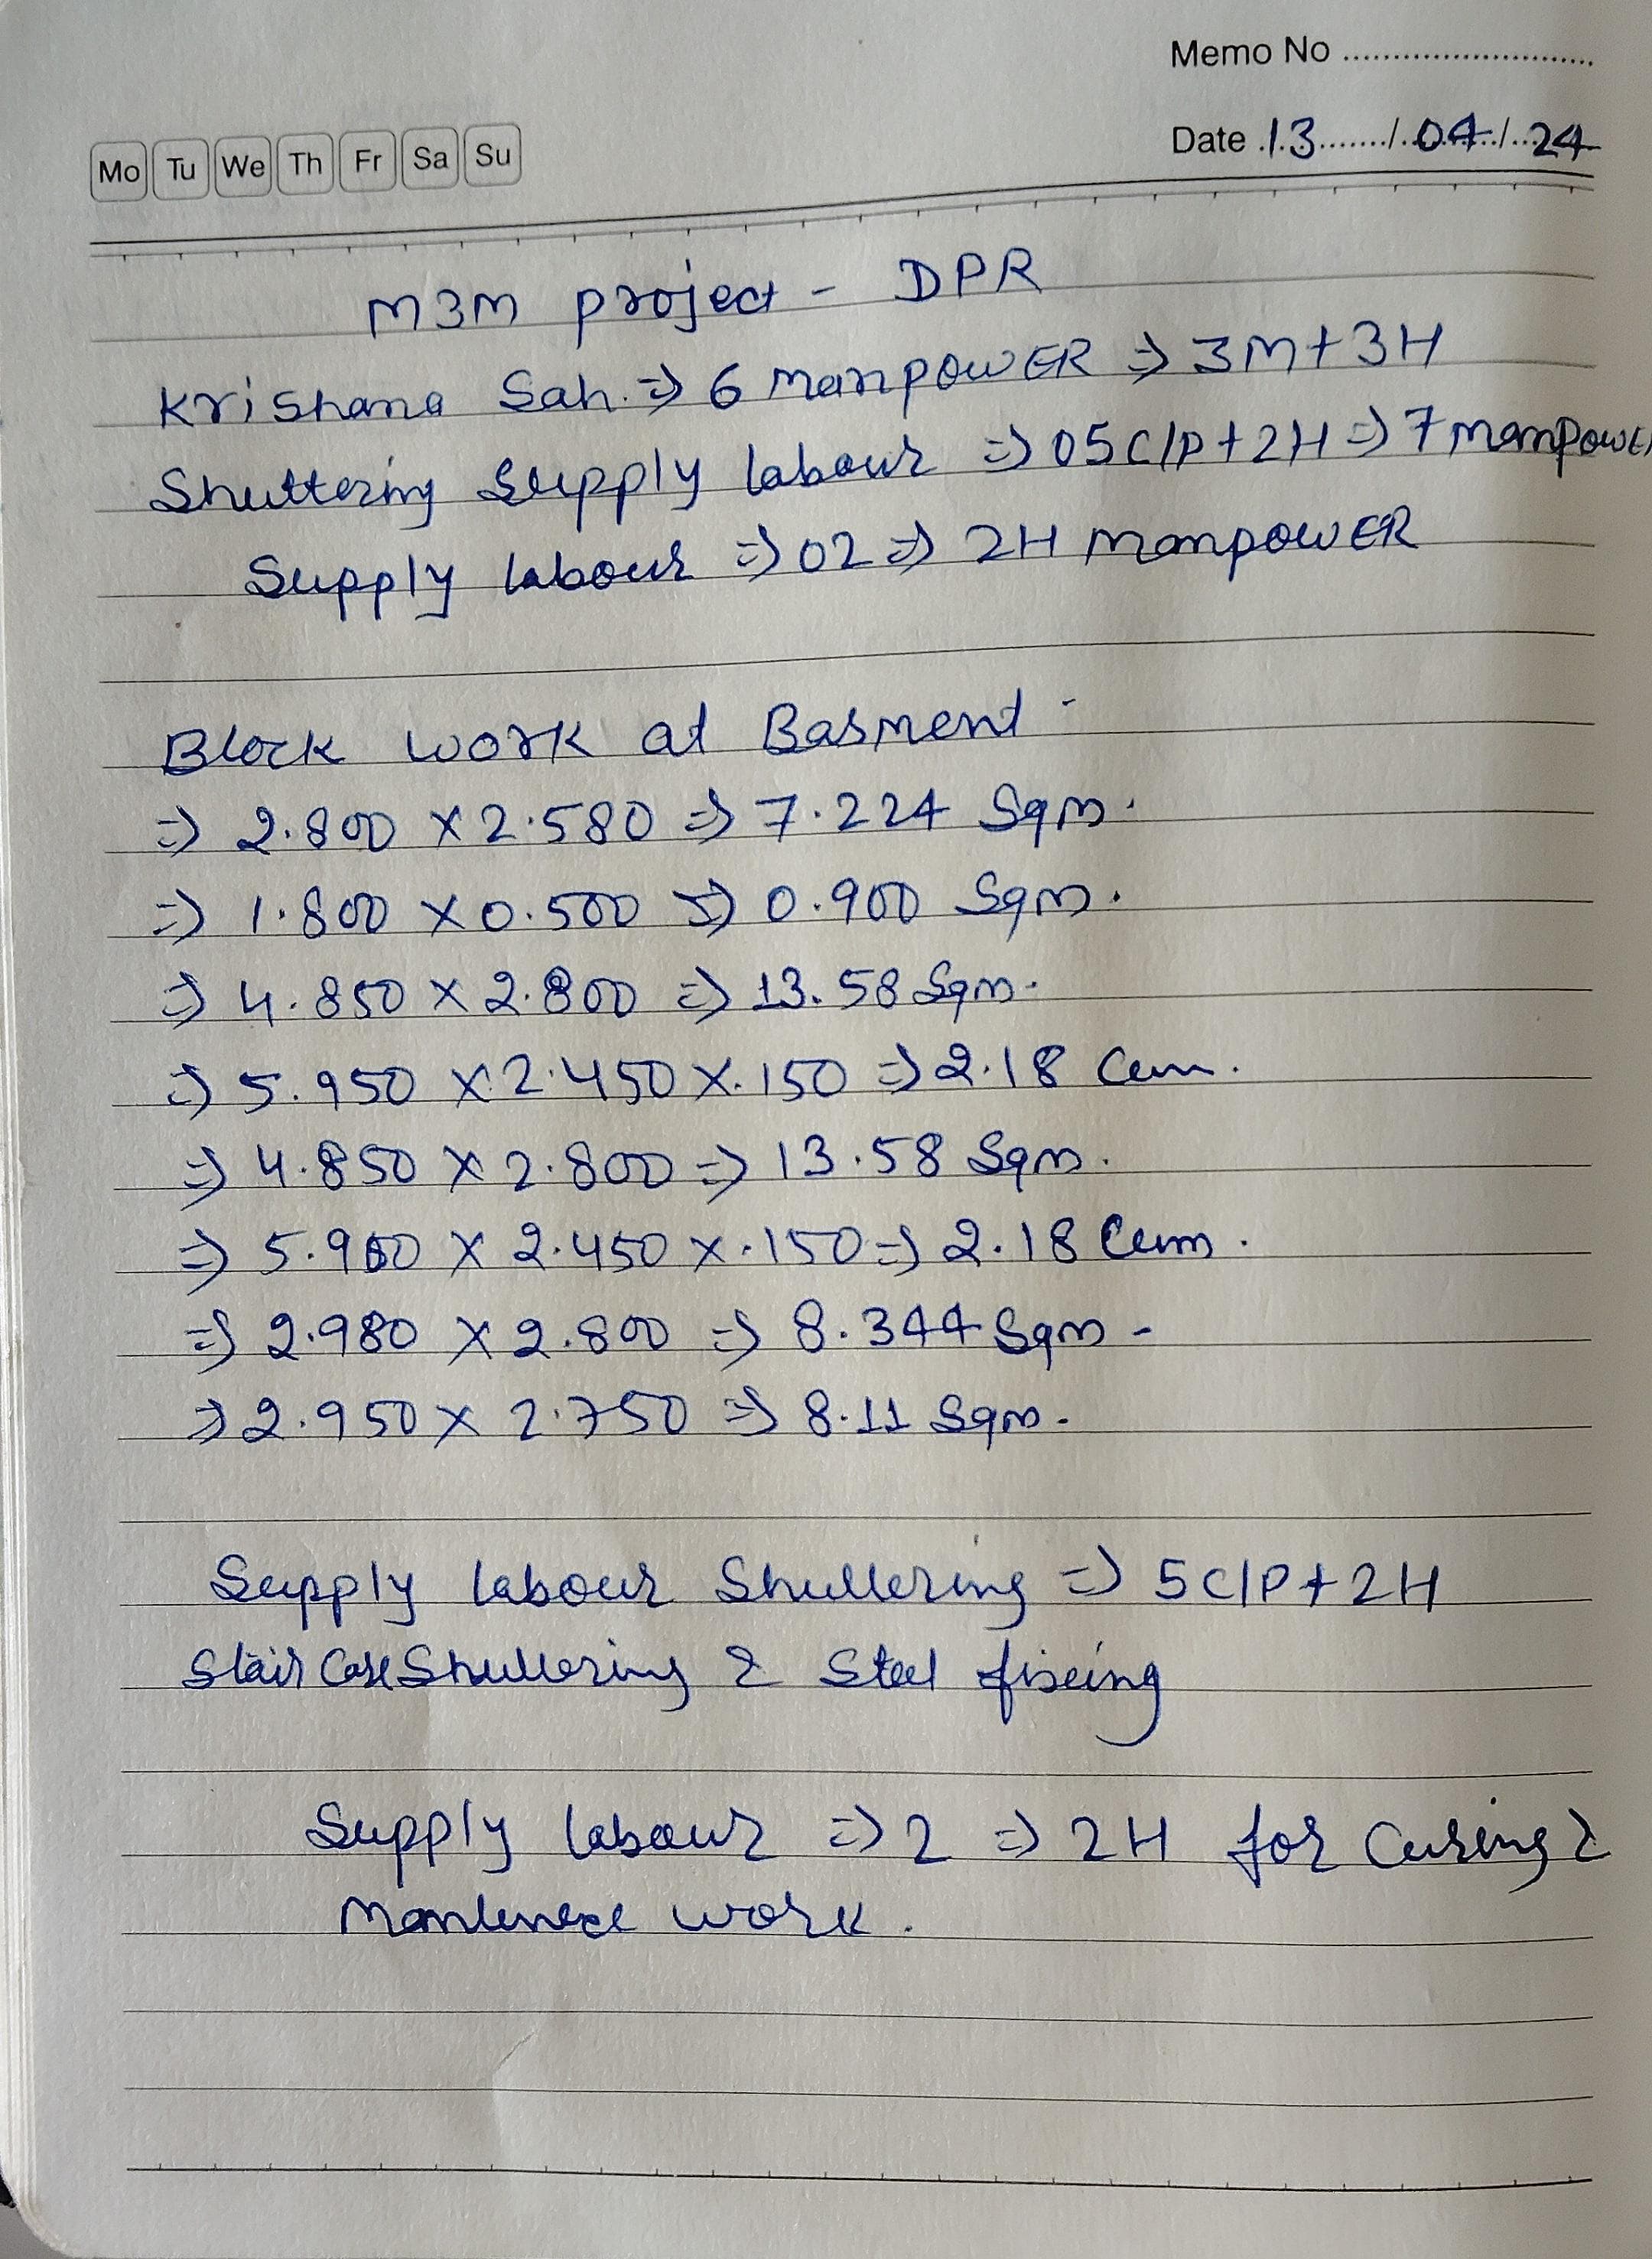 Memo No ............................
Mo Tu We Th Fr Sa Su
Date 13/04/24
M3M project - DPR
Krishana Sah. => 6 manpowER => 3M+3H
Shuttering Supply labour => 05 C/P + 2H => 7 manpower
Supply labour => 02 => 2H manpowER
Block work at Basment -
=> 2.800 x 2.580 => 7.224 Sqm.
=> 1.800 x 0.500 => 0.900 Sqm.
=> 4.850 x 2.800 => 13.58 Sqm.
=> 5.950 x 2.450 x .150 => 2.18 Cum.
=> 4.850 x 2.800 => 13.58 Sqm.
=> 5.950 x 2.450 x .150 => 2.18 Cum.
=> 2.980 x 2.800 => 8.344 Sqm -
=> 2.950 x 2.750 => 8.11 Sqm -
Supply labour Shuttering => 5 C/P + 2H
Stair Case Shuttering & Steel fixing
Supply labour => 2 => 2H for Curing &
work.